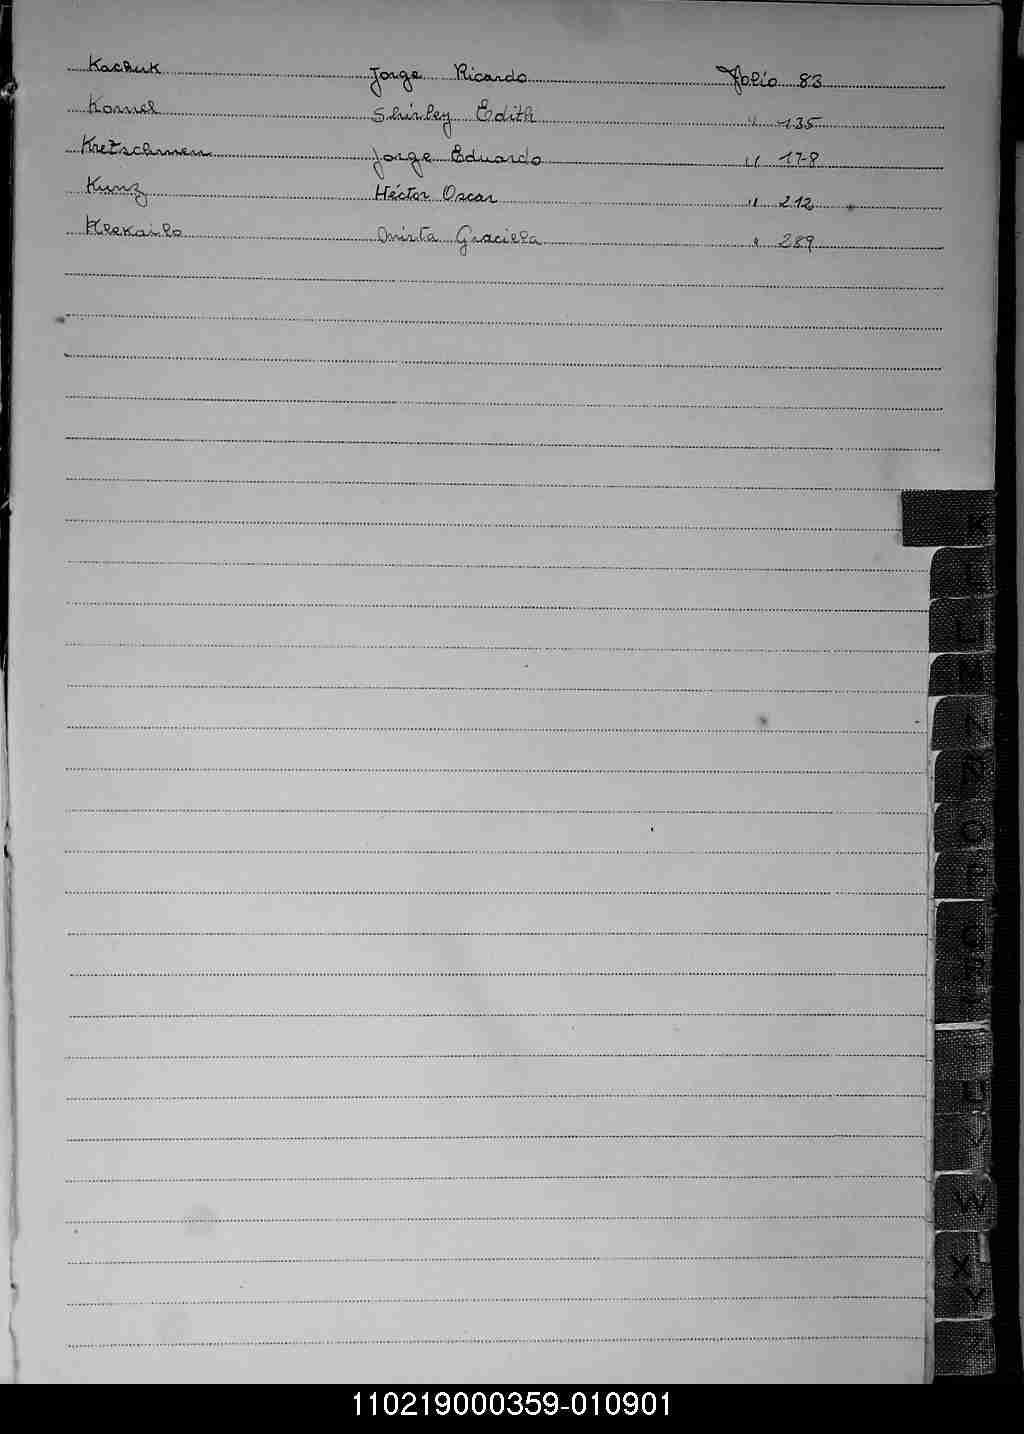 Kachuk Jorge Ricardo Folio 83
Kornel Shirley Edith " 135
Kretschmen Jorge Eduardo " 178
Kunz Héctor Oscar " 212
Klekailo Mirta Graciela " 289
K
L
M
N
Ñ
O
P
Q
U
V
W
X
Y
110219000359-010901